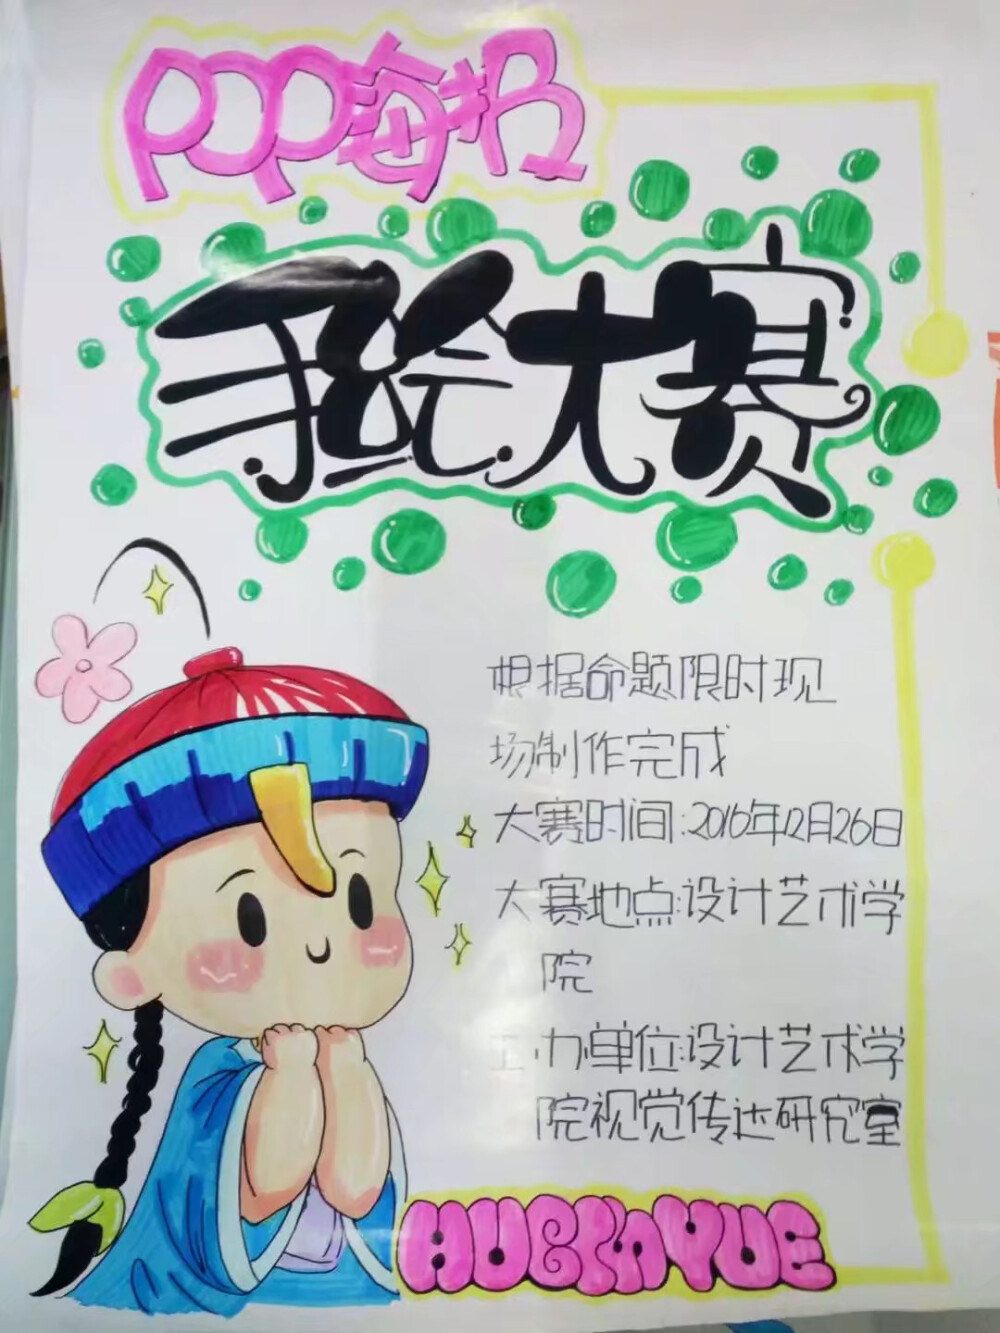 POP海报
手绘大赛
根据命题限时现
场制作完成
大赛时间:2016年12月26日
大赛地点:设计艺术学
院
办单位:设计艺术学
院视觉传达研究室